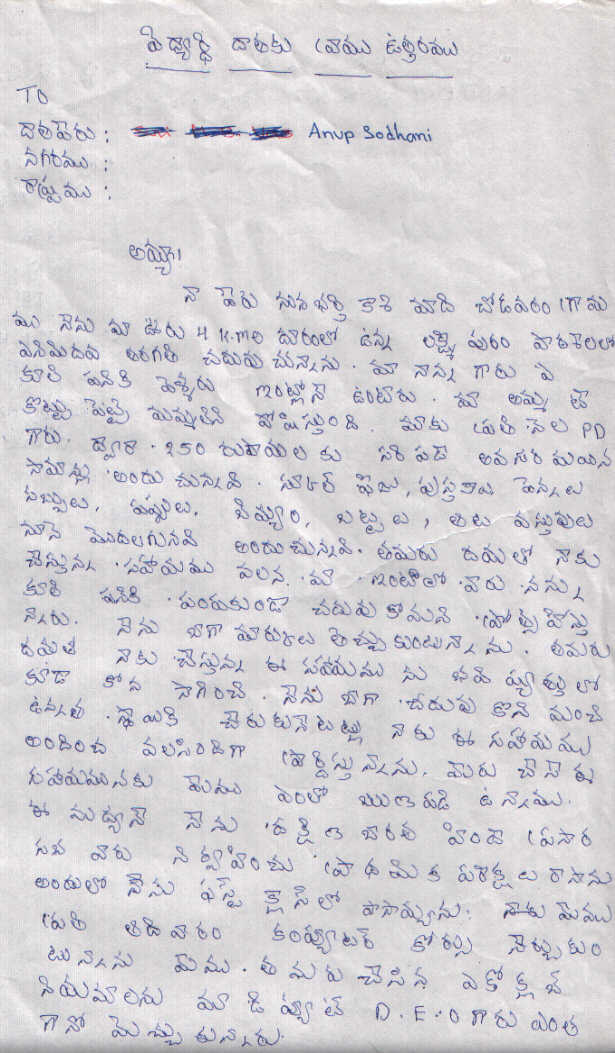 విద్యార్థి దాతకు వ్రాయు ఉత్తరము
TO
దాతపేరు : Anup Sodhani
నగరము :
రాష్ట్రము :
అయ్యా!
నా పేరు కాశి మాది చోడవరం గ్రామ
ము నేను మా ఊరు 4 K.మీ దూరంలో ఉన్న లక్ష్మి పురం పాఠశాలలో
ఎనిమిదవ తరగతి చదువు చున్నాను. మా నాన్న గారు ఏ
కూలి పనికి వెళ్ళరు ఇంట్లోనే ఉంటారు. మా అమ్మ
కొట్టు పెట్టి మమ్మల్ని పోషిస్తుంది. మాకు ప్రతి నెల PD
గారు. ద్వారా. 250 రుపాయల కు సరి పడా అవసర మయిన
సామాన్లు అందు చున్నవి. పుస్తకాలు పెన్నులు
సబ్బులు, పప్పులు, బియ్యం, బట్టలు, తల వస్తువులు
నూనె మొదలగునవి అందుచున్నవి. తమరు దయతో నాకు
చేస్తున్న సహాయము వలన. మా ఇంటిలో వారు నన్ను
కూలి పనికి పంపకుండా చదువు కోమని ప్రోత్సహిస్తు
న్నారు. నేను బాగా మార్కులు తెచ్చుకుంటున్నాను. తమరు
దయతో నాకు చేస్తున్న ఈ సహాయము ను భవిష్యత్తులో
కూడా కొన సాగించి. నేను బాగా చదువు కొని మంచి
ఉన్నత స్థాయికి చేరుకునేటట్లు నాకు ఈ సహాయము
అందించ వలసిందిగా ప్రార్థిస్తున్నాను. మీరు చేసే ఈ
సహాయమునకు మేము ఎంతో ఋణపడి ఉన్నాము.
ఈ మధ్యనే నేను దక్షిణ భారత హిందీ ప్రచార
సభ వారు నిర్వహించు ప్రాథమిక పరీక్షలు రాసాను
అందులో నేను ఫస్ట్ క్లాస్ లో పాసయ్యాను. మేము
ప్రతి ఆదివారం కంప్యూటర్ కోర్సు నేర్చుకుం
టున్నాను మేము. తమరు చేసిన
నియమాలను మా డిప్యూటి D.E.O గారు ఎంత
గానో మెచ్చు తున్నారు.